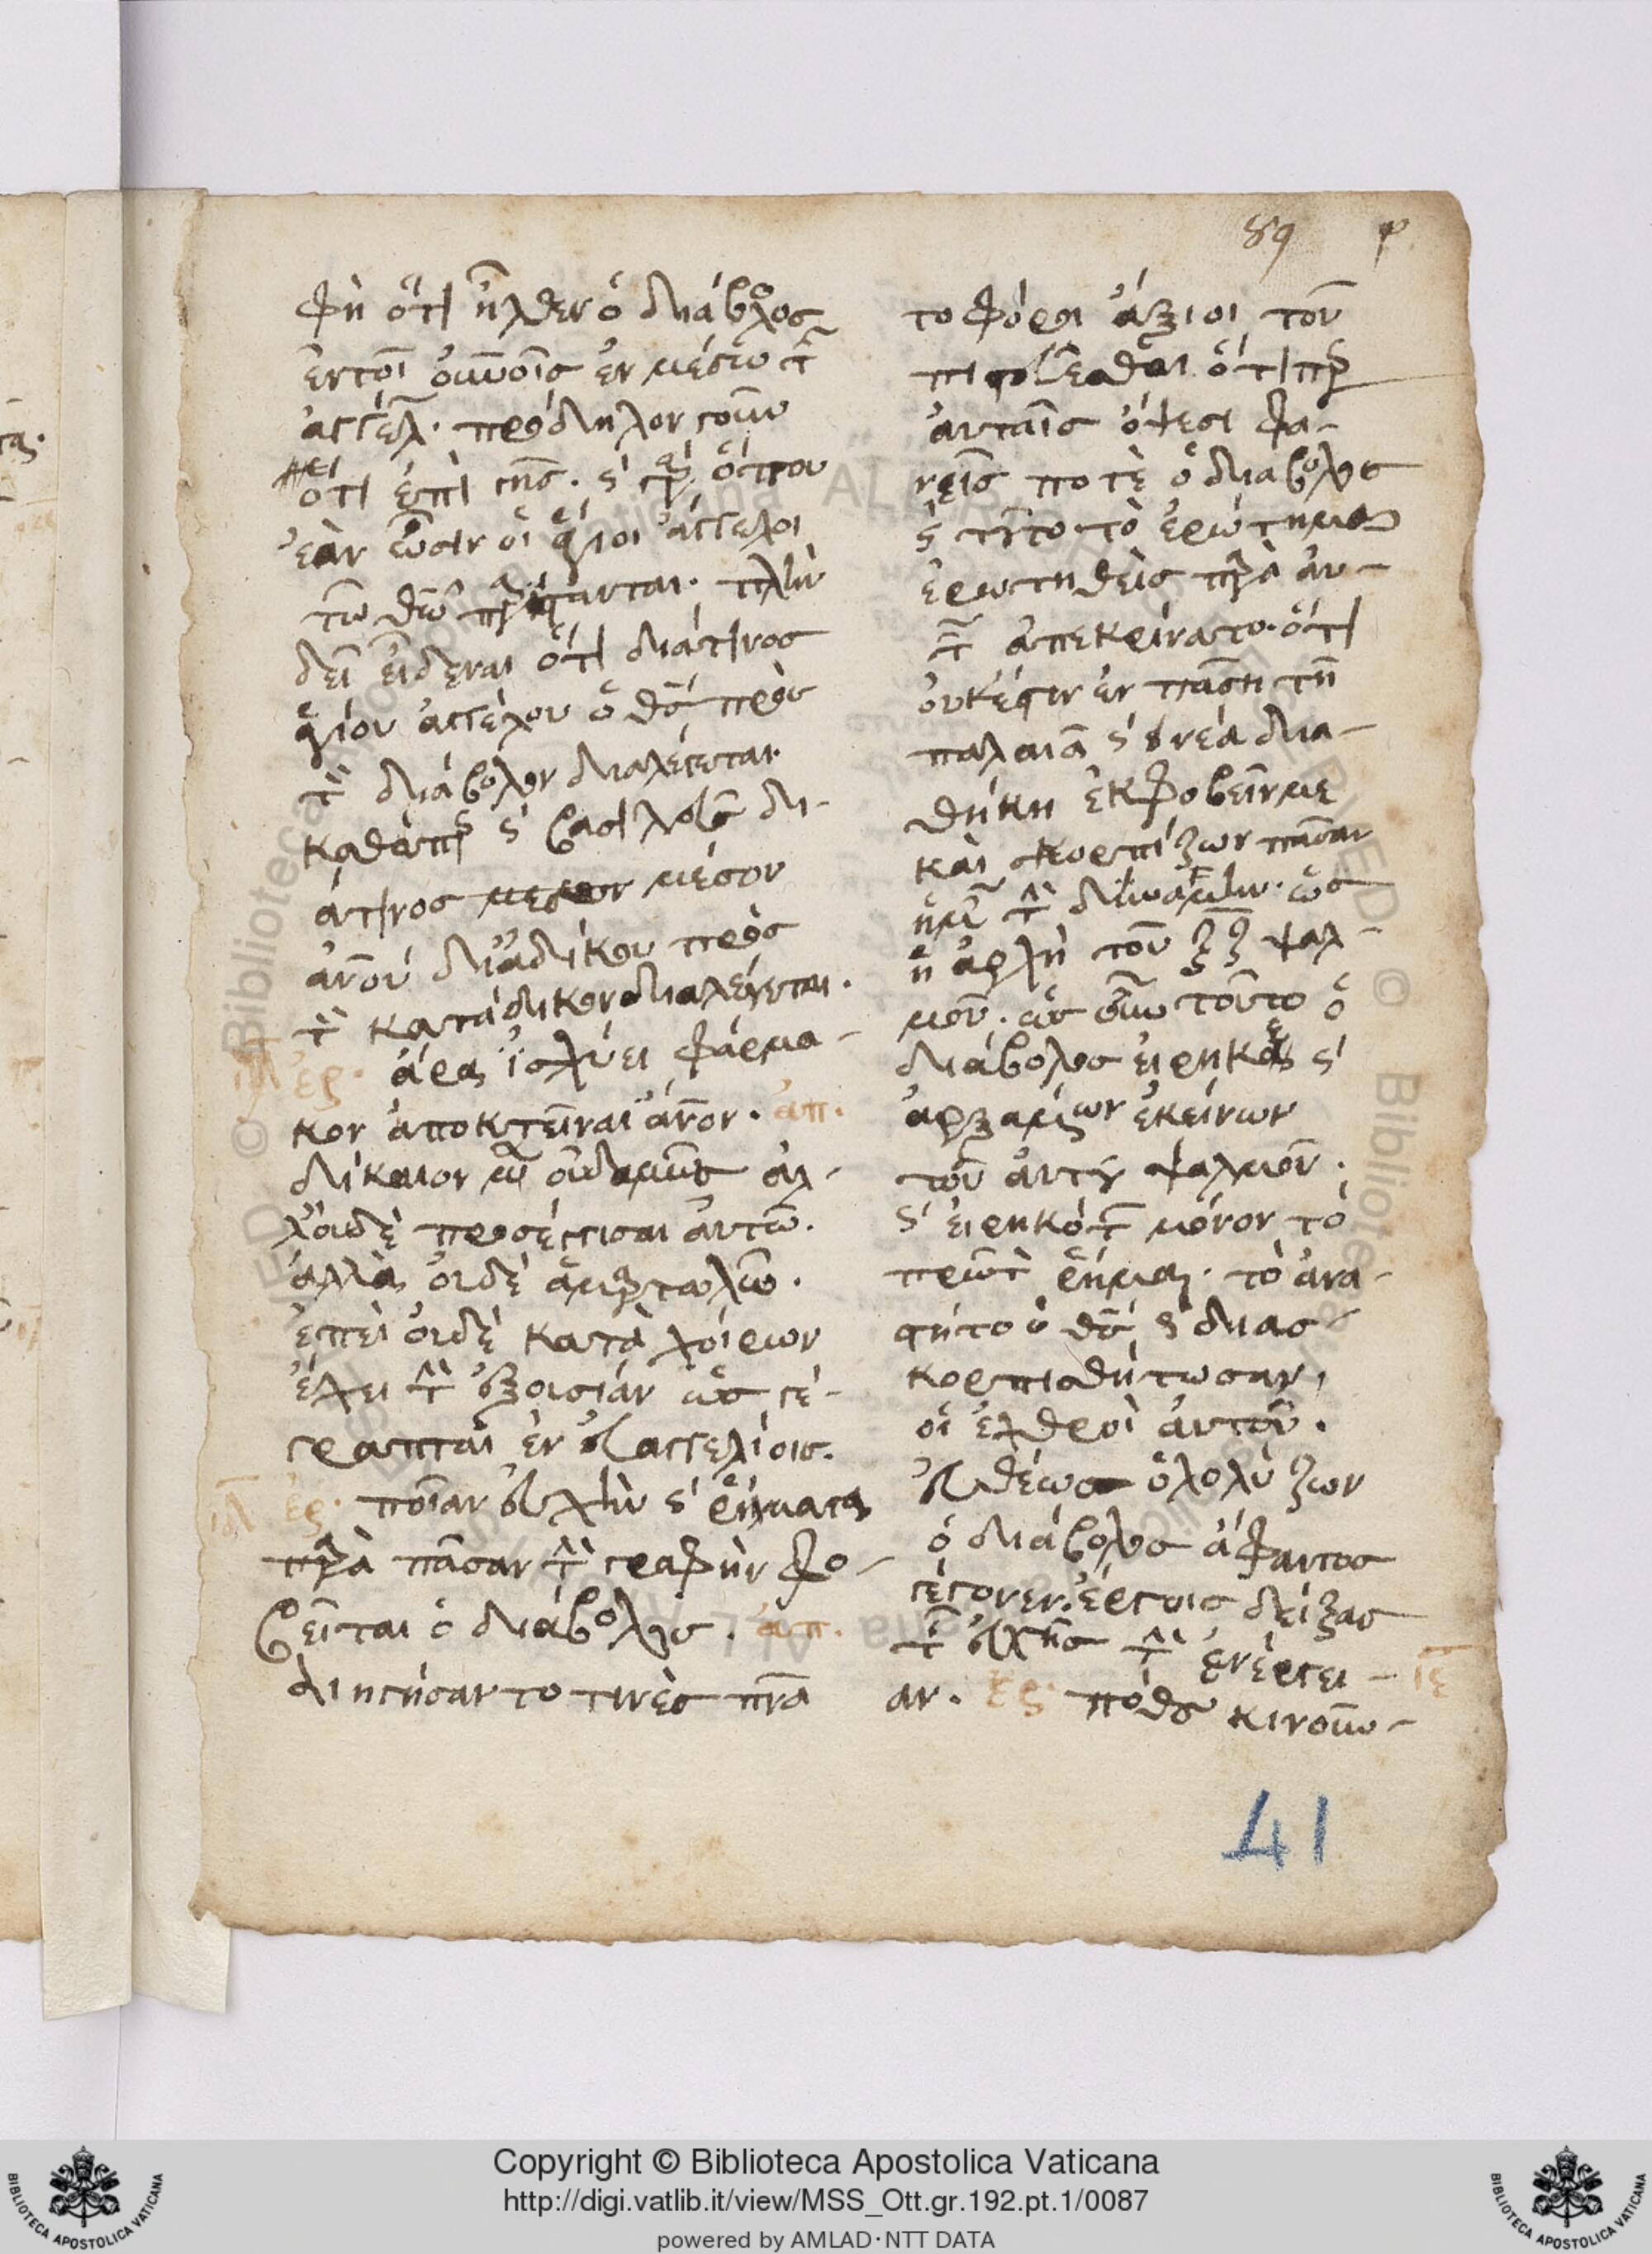 89
φὴ ὅτι ἦλθεν ὁ διάβολος
ἐν τοῖ οὐνοῖς ἐν μέσω τ
ἀγγέλ. πρόδηλον γοῦν
ὅτι ἐπὶ γῆς. ὅπου
ἐὰν ὦσιν οἱ ἅγιοι ἄγγελοι
τῶ θῶ πλὴν
δεῖ εἰδέναι ὅτι διά τινος
ἁγίου ἀγγέλου ὁ θς πρὸς
τὸν διάβολον διαλέγεται.
καθάπερ καὶ βασιλεὺς δι-
ά τινος μέσον
ἀνοῦ διαδίκου πρὸς
τὸν κατάδικον διαλέγεται.
ιγ ἐρ. ἆρα ἰσχύει φάρμα-
κον ἀποκτεῖναι ἄνον. ἀπ.
δίκαιον μὲν οὐδαμῶς ἀλ-
λ' οὐδὲ προσέγγισαι αὐτῶ.
ἀλλὰ οὐδὲ ἁμαρτωλῶ.
ἐπεὶ οὐδὲ κατὰ χοίρων
ἔχει τὴν ἐξουσίαν ὡς γέ-
γραπται ἐν εὐαγγελίοις.
ιδ ἐρ. ποῖαν εὐχὴν καὶ ῥήματα
παρὰ πᾶσαν τὴν γραφὴν φο-
βεῖται ὁ διάβολος. ἀπ.
διηγήσαντο τινὲς πνα
τοφόροι ἄξιοι τοῦ
πιστεύεσθαι ὅτιπερ
αὐταῖς ὄψεσι φα-
νεὶς ποτὲ ὁ διάβολος
καὶ τοῦτο τὸ ἐρώτημα
ἐρωτηθεὶς παρὰ αὐ-
τ ἀπεκρίνατο. ὅτι
οὐκ ἔστιν ἐν πάση τῆ
παλαιᾶ καὶ νέα δια-
θήκη ἐκφοβεῖν με
καὶ σκορπίζων πᾶσαν
ἡμῶν τὴν δύναμιν. ὡς
ἡ ἀρχὴ τοῦ ξζ ψαλ-
μοῦ. ὡς οὖν τοῦτο ὁ
διάβολος εἰρηκὼς καὶ
ἀρξαμένων ἐκείνων
τὸν αὐτὸν ψαλμὸν.
καὶ εἰρηκότων μόνον τὸ
πρῶτον ῥῆμα. τὸ ἀνα-
στήτω ὁ θς καὶ διασ-
κορπισθήτωσαν
οἱ ἐχθροὶ αὐτοῦ.
εὐθέως ὀλολύζων
ὁ διάβολος ἄφαντος
γέγονεν. ἔργοις δείξας
τῆς εὐχῆς τὴν ἐνέργει-
αν. ἐρ. πόθεν κινουμ- ιε
41
Copyright © Biblioteca Apostolica Vaticana
http://digi.vatlib.it/view/MSS_Ott.gr.192.pt.1/0087
powered by AMLAD·NTT DATA
BIBLIOTECA APOSTOLICA VATICANA
BIBLIOTECA APOSTOLICA VATICANA